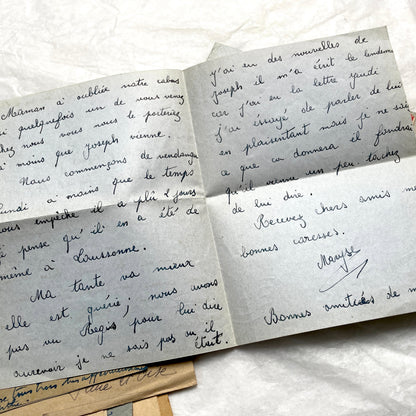 Maman a oubliée notre cabas
si quelquefois un de vous venez
chez nous vous nous le porteriez
a moins que Joseph vienne.
Nous commençons de vendanger
lundi a moins que le temps
nous empêche il a plü 2 jours
je pense qu'il en a été de
même à Laussonne.
Ma tante va mieux
elle est guérie; nous avons
pas vu Régis pour lui dire
aurevoir je ne sais pas ou il
était.
j'ai eu des nouvelles de
joseph il m'a écrit le lendemain
car j'ai eu la lettre jeudi
j'ai éssayé de parler de lui
en plaisentant mais je ne sais
ce que ca donnera il faudrai
qu'il vienne un peu tâchez
de lui dire.
Recevez chers amis m
bonnes caresses.
Maryse
Bonnes amitiées de m